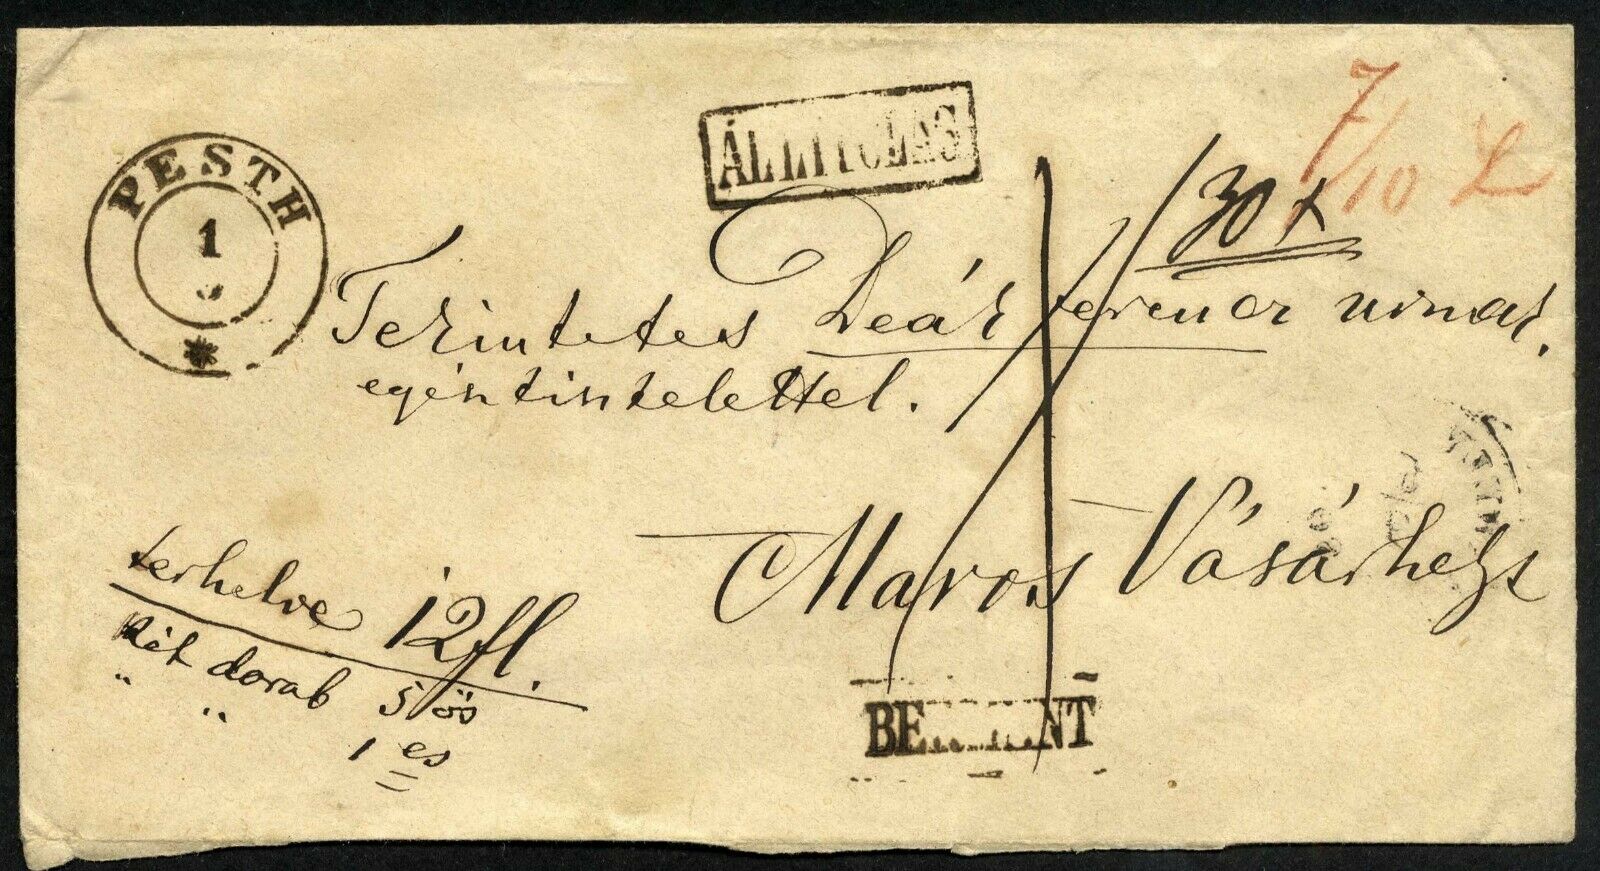 PESTH
1
ÁLLÍTÓLAG
7/10 L
30 x
Tekintetes Deák Ferencz urnak.
egész tisztelettel.
Maros Vásárhely
terhelve 12 fl.
két darab 5 ös
" " 1 es